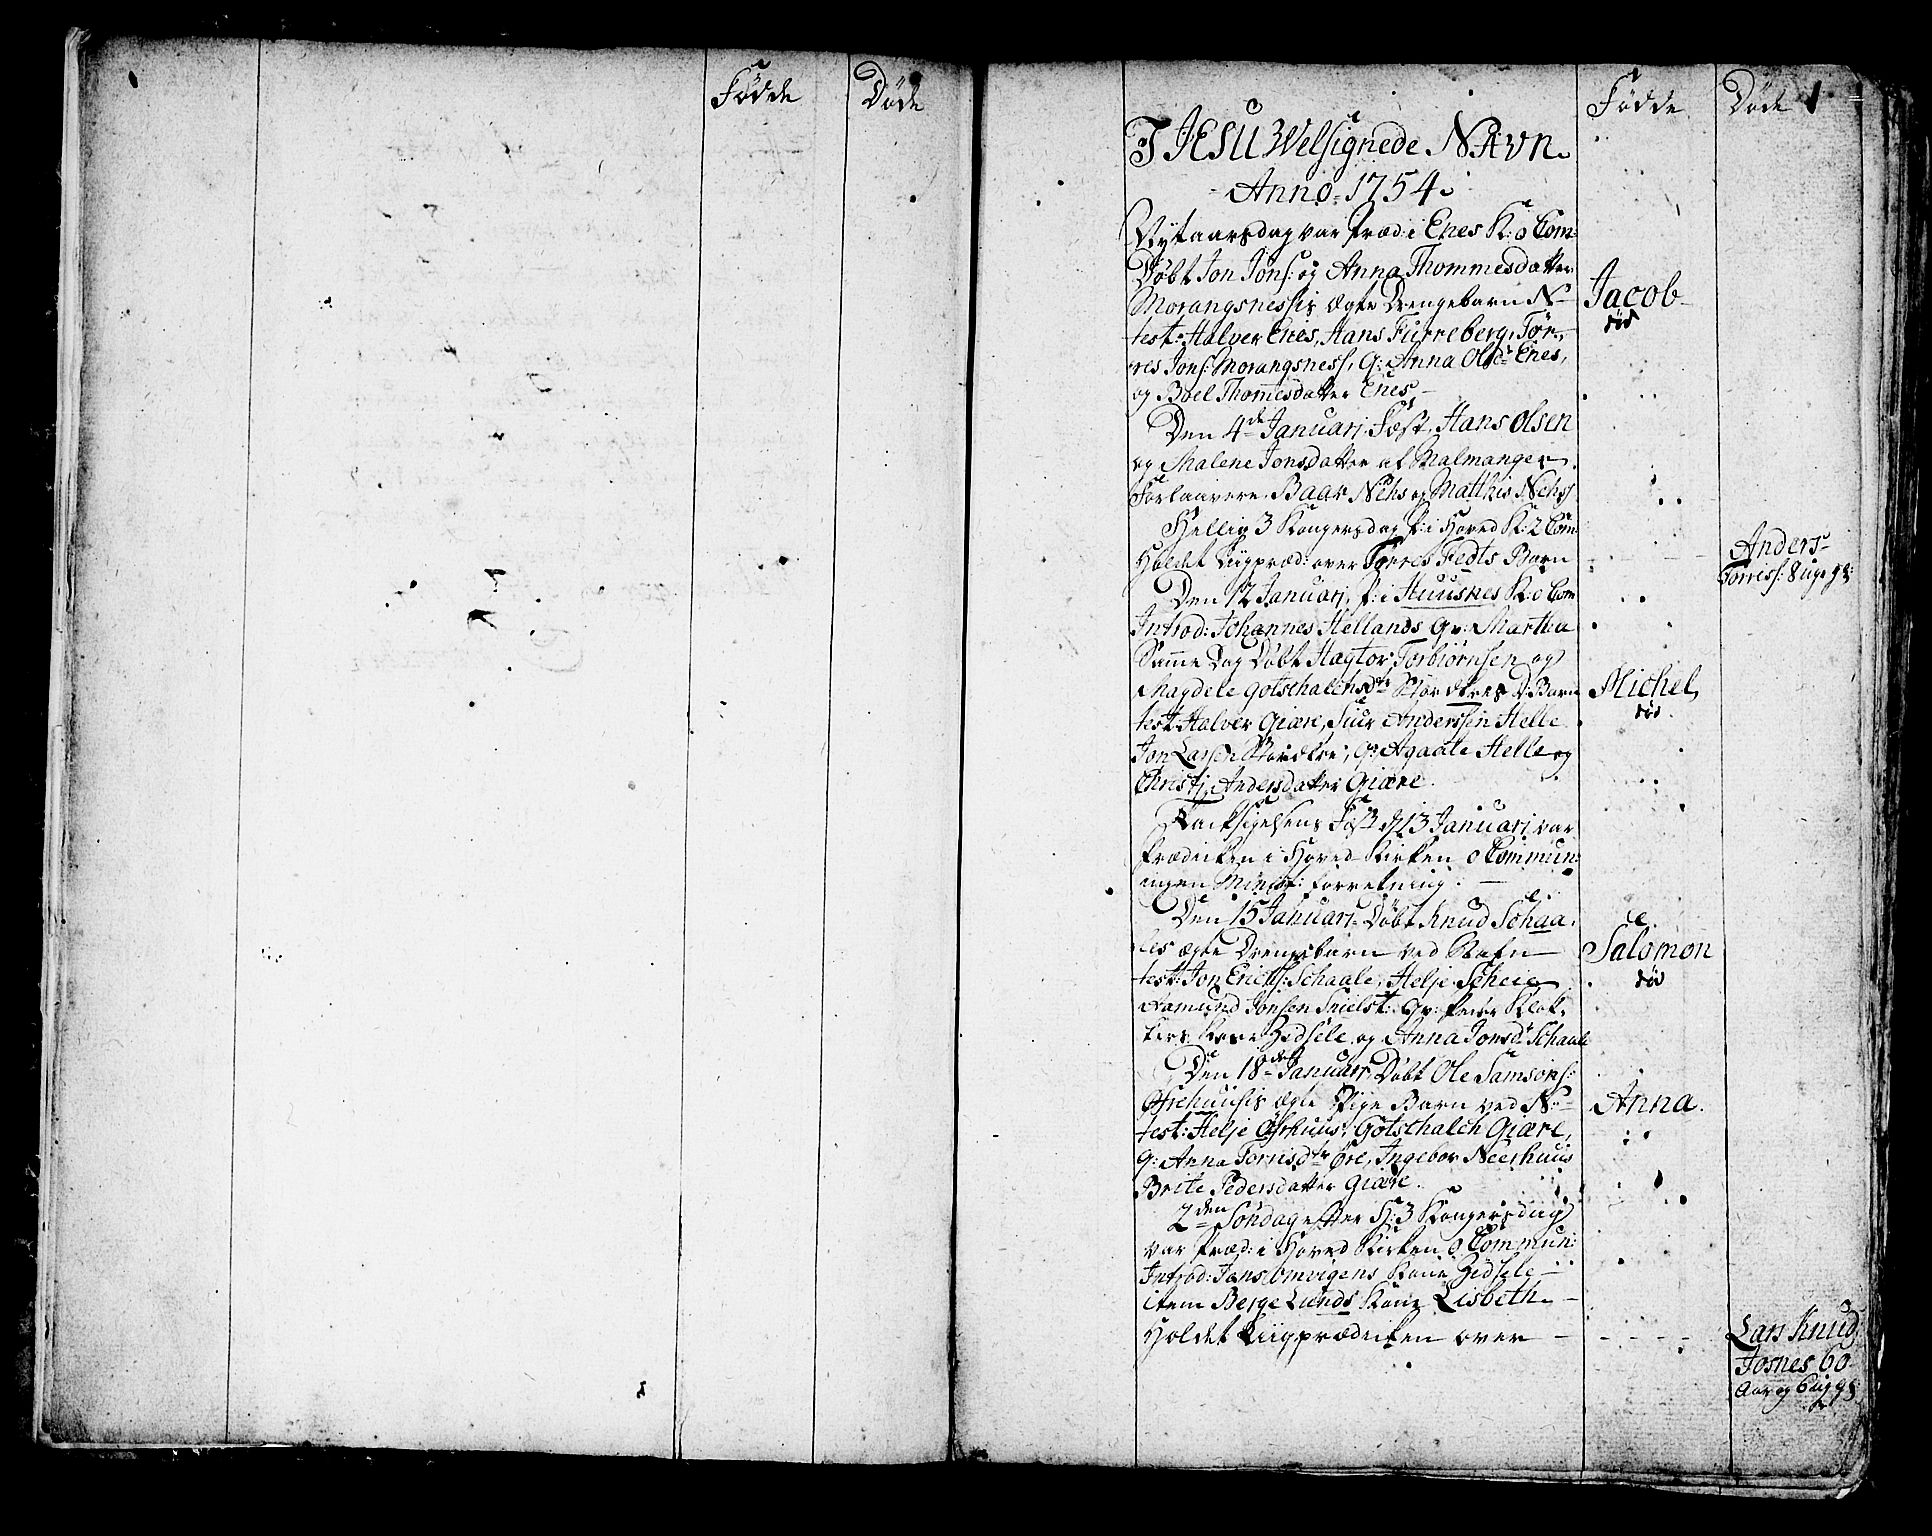 Fødde
Døde
Fødde
Døde 1
I JESU Welsignede NAvn
Anno 1754
Nytaarsdag var Præd: i Enes K: 0 Com:
Døbt Jon Jons: og Anna Thommesdatter
Morangsnessis ægte Drengebarn N
Jacob
død
test: Halver Enes, Hans Furreberg, Tør-
res Jons: Morangsness, Q: Anna Olsdr Enes,
og Boel Thommesdatter Enes,
Den 4de Januarj Fæst, Hans Olsen
og Malene Jonsdatter af Malmanger.
Forlaavere Baar Nehs og Matthis Nehs
Hellig 3 Kongersdag P: i Hoved K: 2 Com
Holdet Liigpræd: over Torres Fedts Barn
Anders
Torress: 8 uger gl:
Den 12 Januarj, P: i Huusnes K: 0 Com
Introd: Johannes Hellands Qv: Martha
Samme Dag Døbt Hagtor Torbiørnsen og
Magdele Gotschalchsdtr D: Barn
Michel
død.
test: Halver Giære, Siur Anderssen Helle
Jon Larsen Q: Agaate Helle og
Christj Andersdatter Giære.
Tacksigelsens Fæst d 13 Januarj var
Prædicken i Hoved Kirken 0 Commun:
ingen Minist: forretning.
Den 15 Januarj Døbt Knud Schaa-
les ægte Drengebarn ved Nafn
Salomon
død
test: Jon Erichs: Schaale, Helje Scheie
Aamund Jonsen Snielst: Qv: Peder Klok-
kers Kone Zidsele og Anna Jonsdr Schaale
Den 18de Januarj Døbt Ole Samsons:
ægte Pige Barn ved N
Anna.
test: Helje Gotschalch Giære,
Q: Anna Torrisdtr Øre, Ingebor Neerhuus
Brite Pedersdatter Giære.
2den Søndag efter H: 3 Kongersdag
var Præd: i Hoved Kirken 0 Commun:
Introd: Jans Omvigens Kone Zidsele
item Berge Lunds Kone Lisbeth
Holdet Liigprædicken over
Lars Knud
Josnes 60
Aar og 6 ug gl: